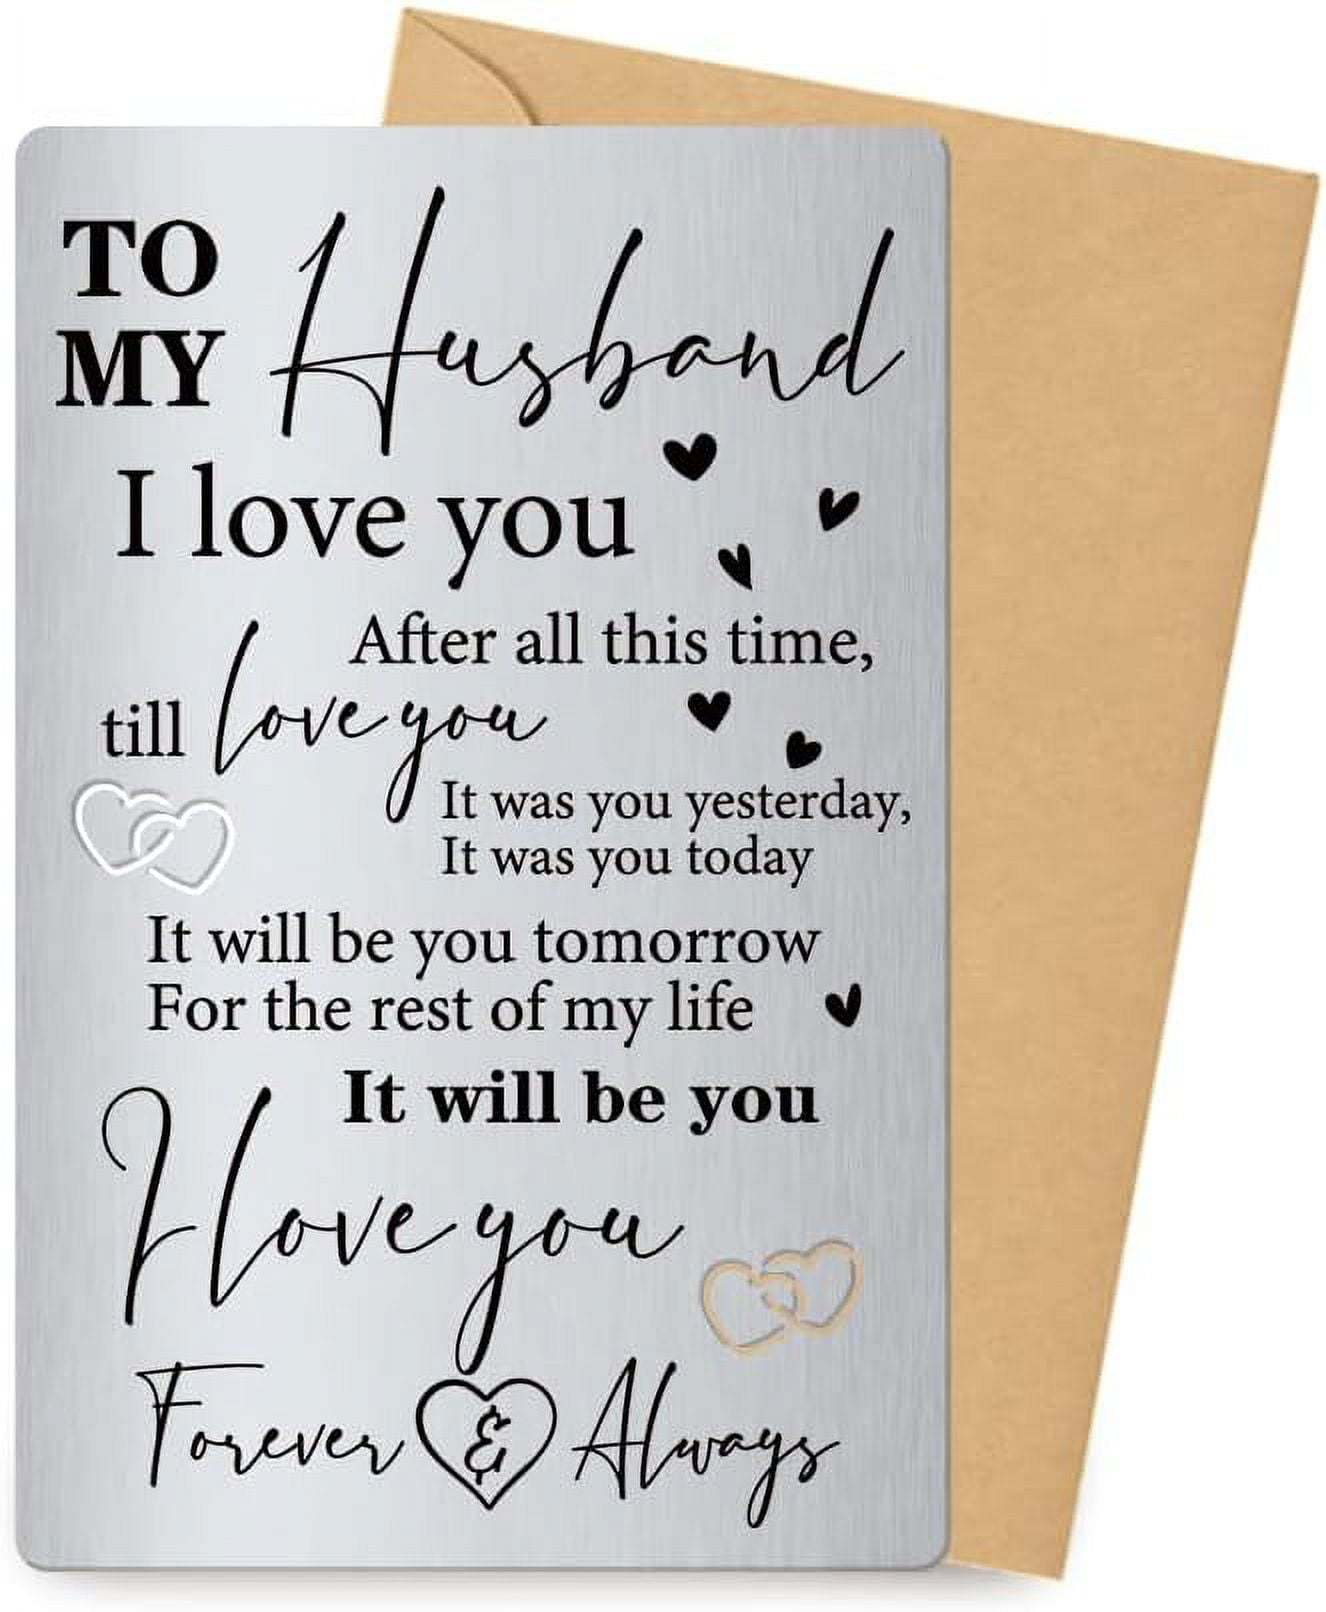 TO
MY Husband
I love you
After all this time,
till love you
It was you yesterday,
It was you today
It will be you tomorrow
For the rest of my life
It will be you
I love you
Forever & Always